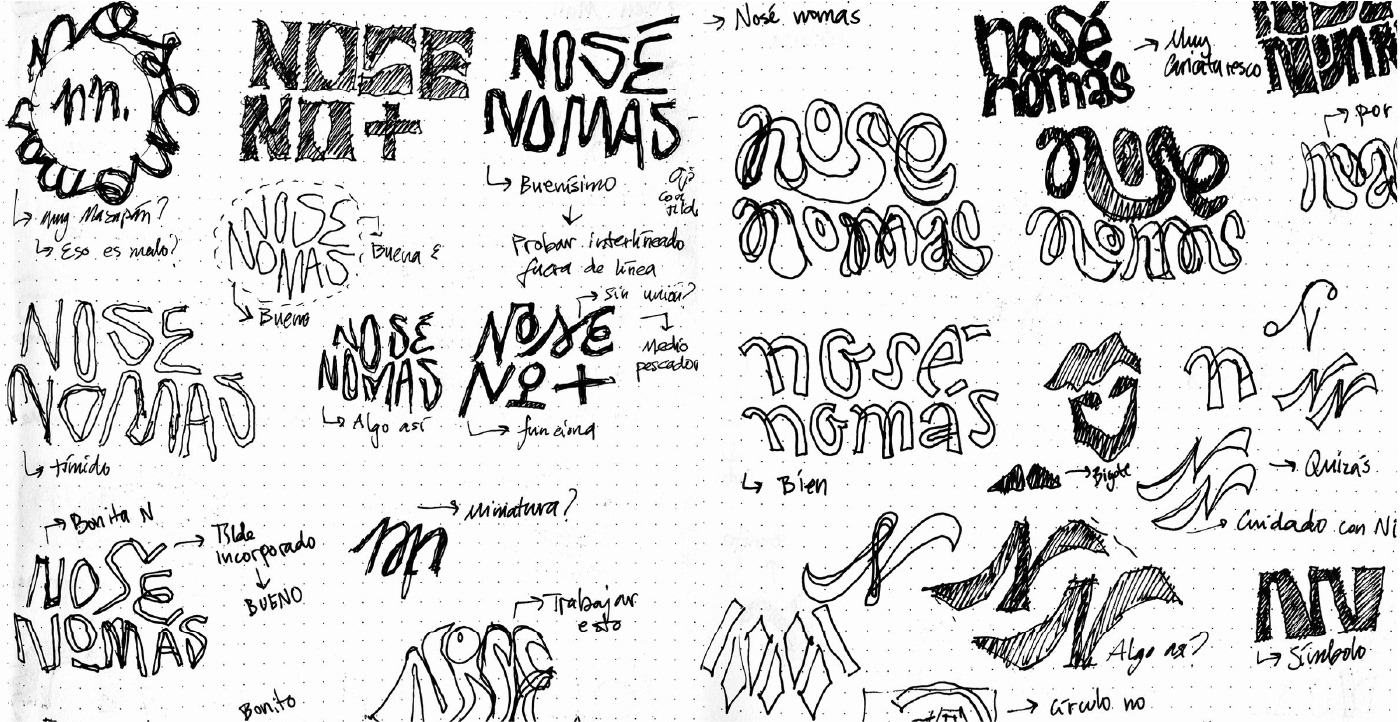 nn.
↳ muy Mazapán?
↳ Eso es malo?
NOSE
NO+
NOSÉ
NOMAS
↳ Buenísimo
Probar interlineado
fuera de línea
NOSE
NOMAS
Buena É
↳ Bueno
NOSE
NOMAS
↳ tímido
NOSÉ
NOMAS
↳ Algo así
NOSE
NO+
Sin unión?
Medio
pescador
↳ funciona
Bonita N
NOSE
NOMÁS
Tilde
incorporado
BUENO
nn
miniatura?
Trabajar
esto
NOSE
Bonito
→ Nosé nomas
nosé
nomas
→ Muy
Caricaturesco
por
nose
nomas
nose
nomas
nosé
nomás
↳ Bien
→ Bigote
n
→ Quizás
Cuidado con Ni
Algo así?
NN
↳ Símbolo
→ círculo no